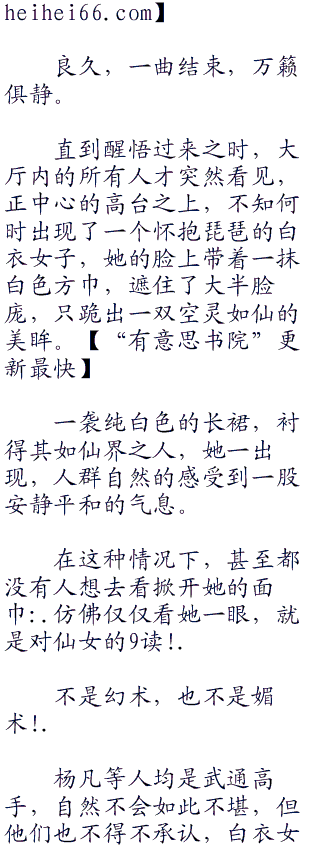 heihei66.com】
良久，一曲结束，万籁
俱静。
直到醒悟过来之时，大
厅内的所有人才突然看见，
正中心的高台之上，不知何
时出现了一个怀抱琵琶的白
衣女子，她的脸上带着一抹
白色方巾，遮住了大半脸
庞，只跪出一双空灵如仙的
美眸。【“有意思书院”更
新最快】
一袭纯白色的长裙，衬
得其如仙界之人，她一出
现，人群自然的感受到一股
安静平和的气息。
在这种情况下，甚至都
没有人想去看掀开她的面
巾:.仿佛仅仅看她一眼，就
是对仙女的9读!.
不是幻术，也不是媚
术!.
杨凡等人均是武通高
手，自然不会如此不堪，但
他们也不得不承认，白衣女